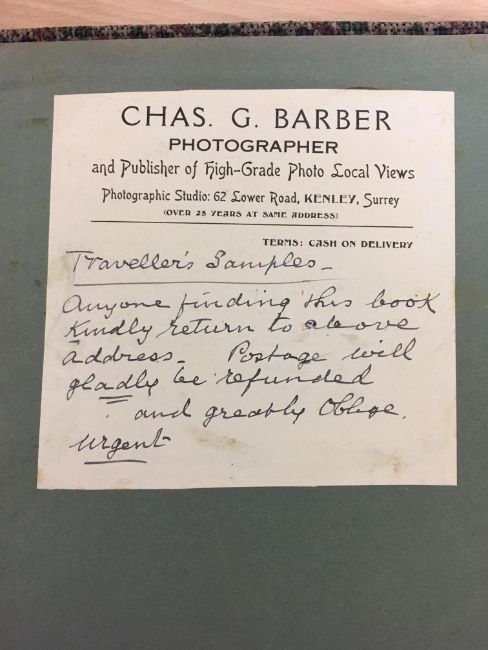 CHAS. G. BARBER
PHOTOGRAPHER
and Publisher of High-Grade Photo Local Views
Photographic Studio: 62 Lower Road, KENLEY, Surrey
(OVER 25 YEARS AT SAME ADDRESS)
TERMS: CASH ON DELIVERY
Traveller's Samples -
Anyone finding this book
Kindly return to above
address - Postage will
gladly be refunded
and greatly Oblige.
Urgent